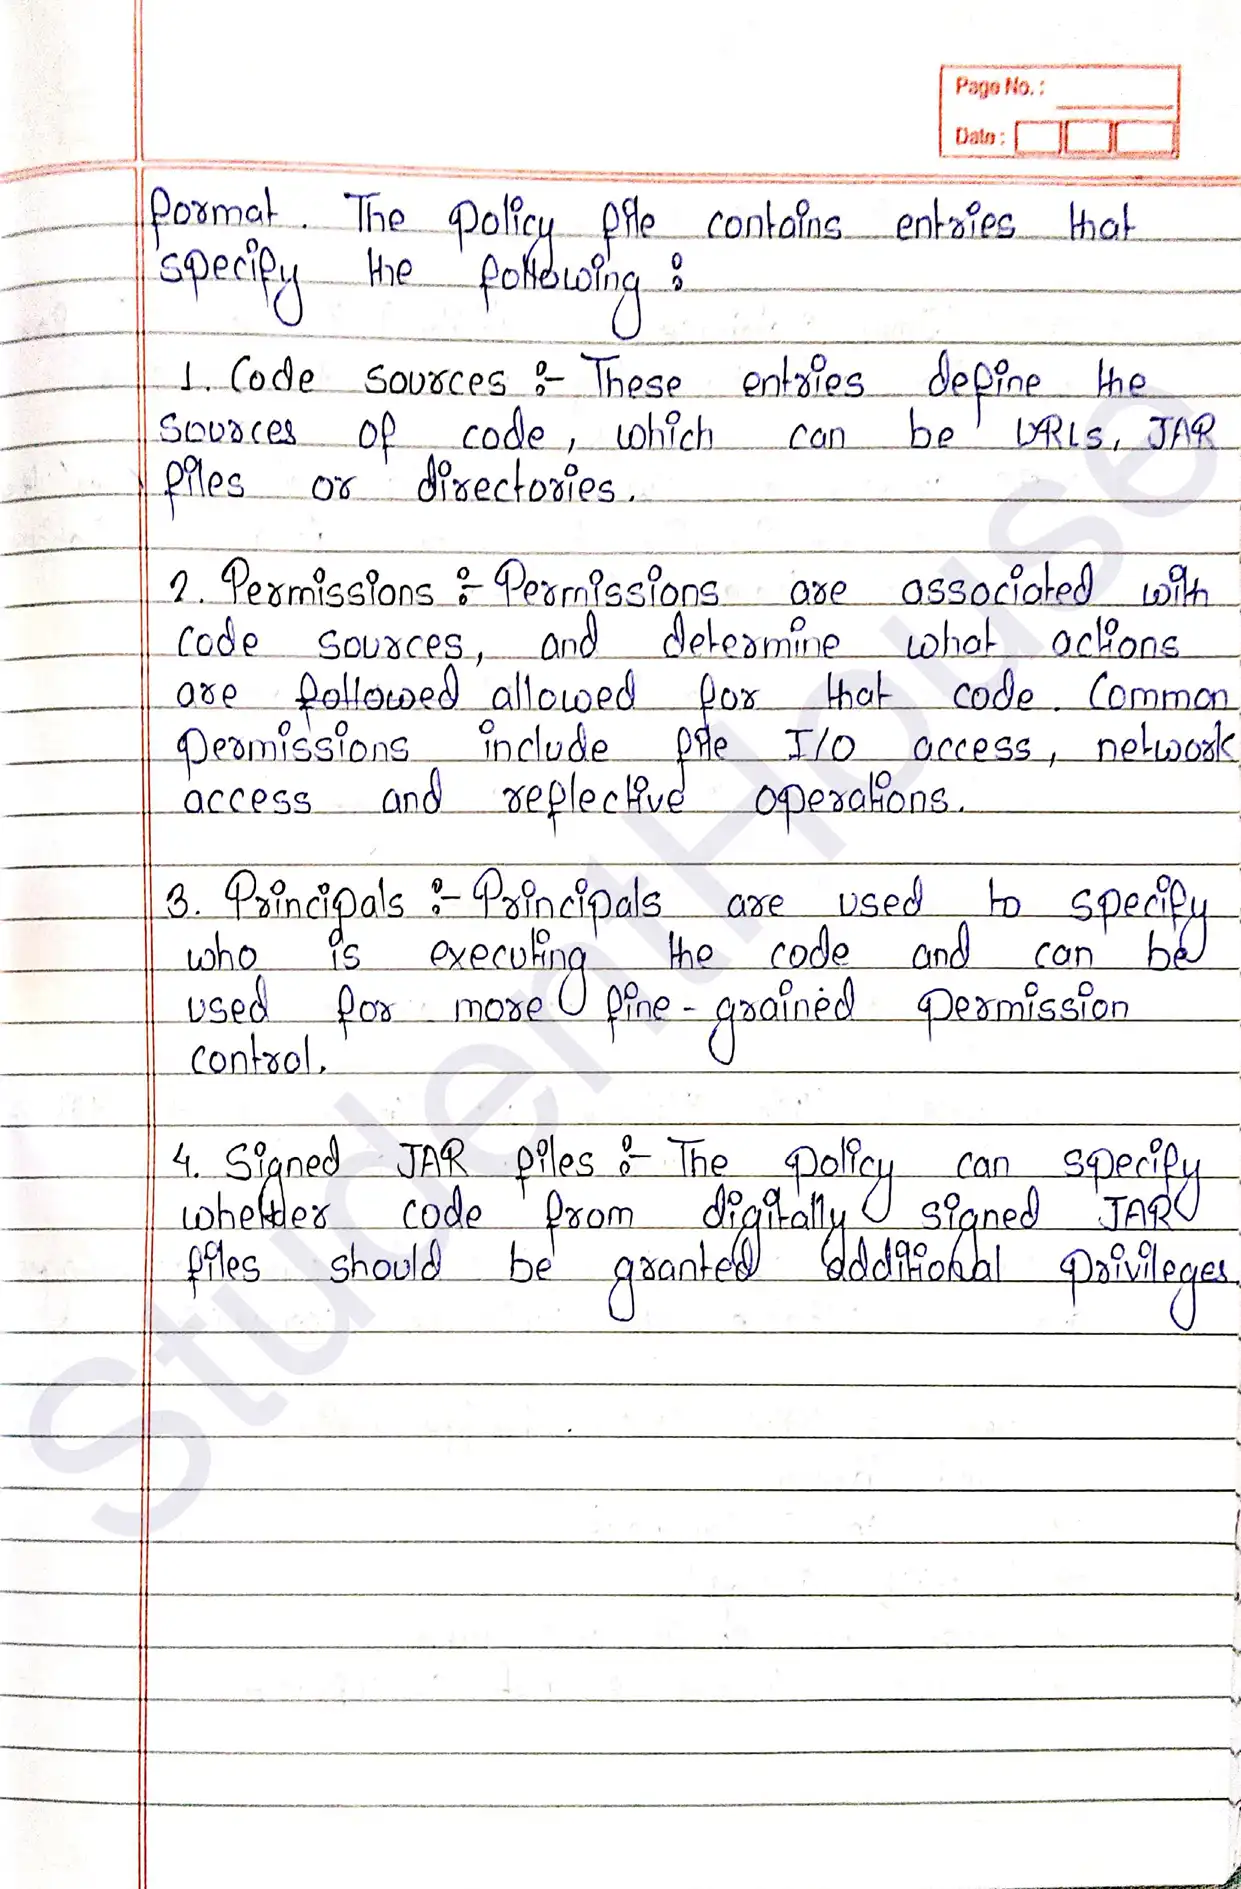 Page No. :
Date :
format. The policy file contains entries that
specify the following :
1. Code sources :- These entries define the
sources of code, which can be URLs, JAR
files or directories.
2. Permissions :- Permissions are associated with
code sources, and determine what actions
are followed allowed for that code. Common
permissions include file I/O access, network
access and reflective operations.
3. Principals :- Principals are used to specify
who is executing the code and can be
used for more fine-grained permission
control.
4. Signed JAR files :- The policy can specify
whether code from digitally signed JAR
files should be granted additional privileges.
StudentHouse